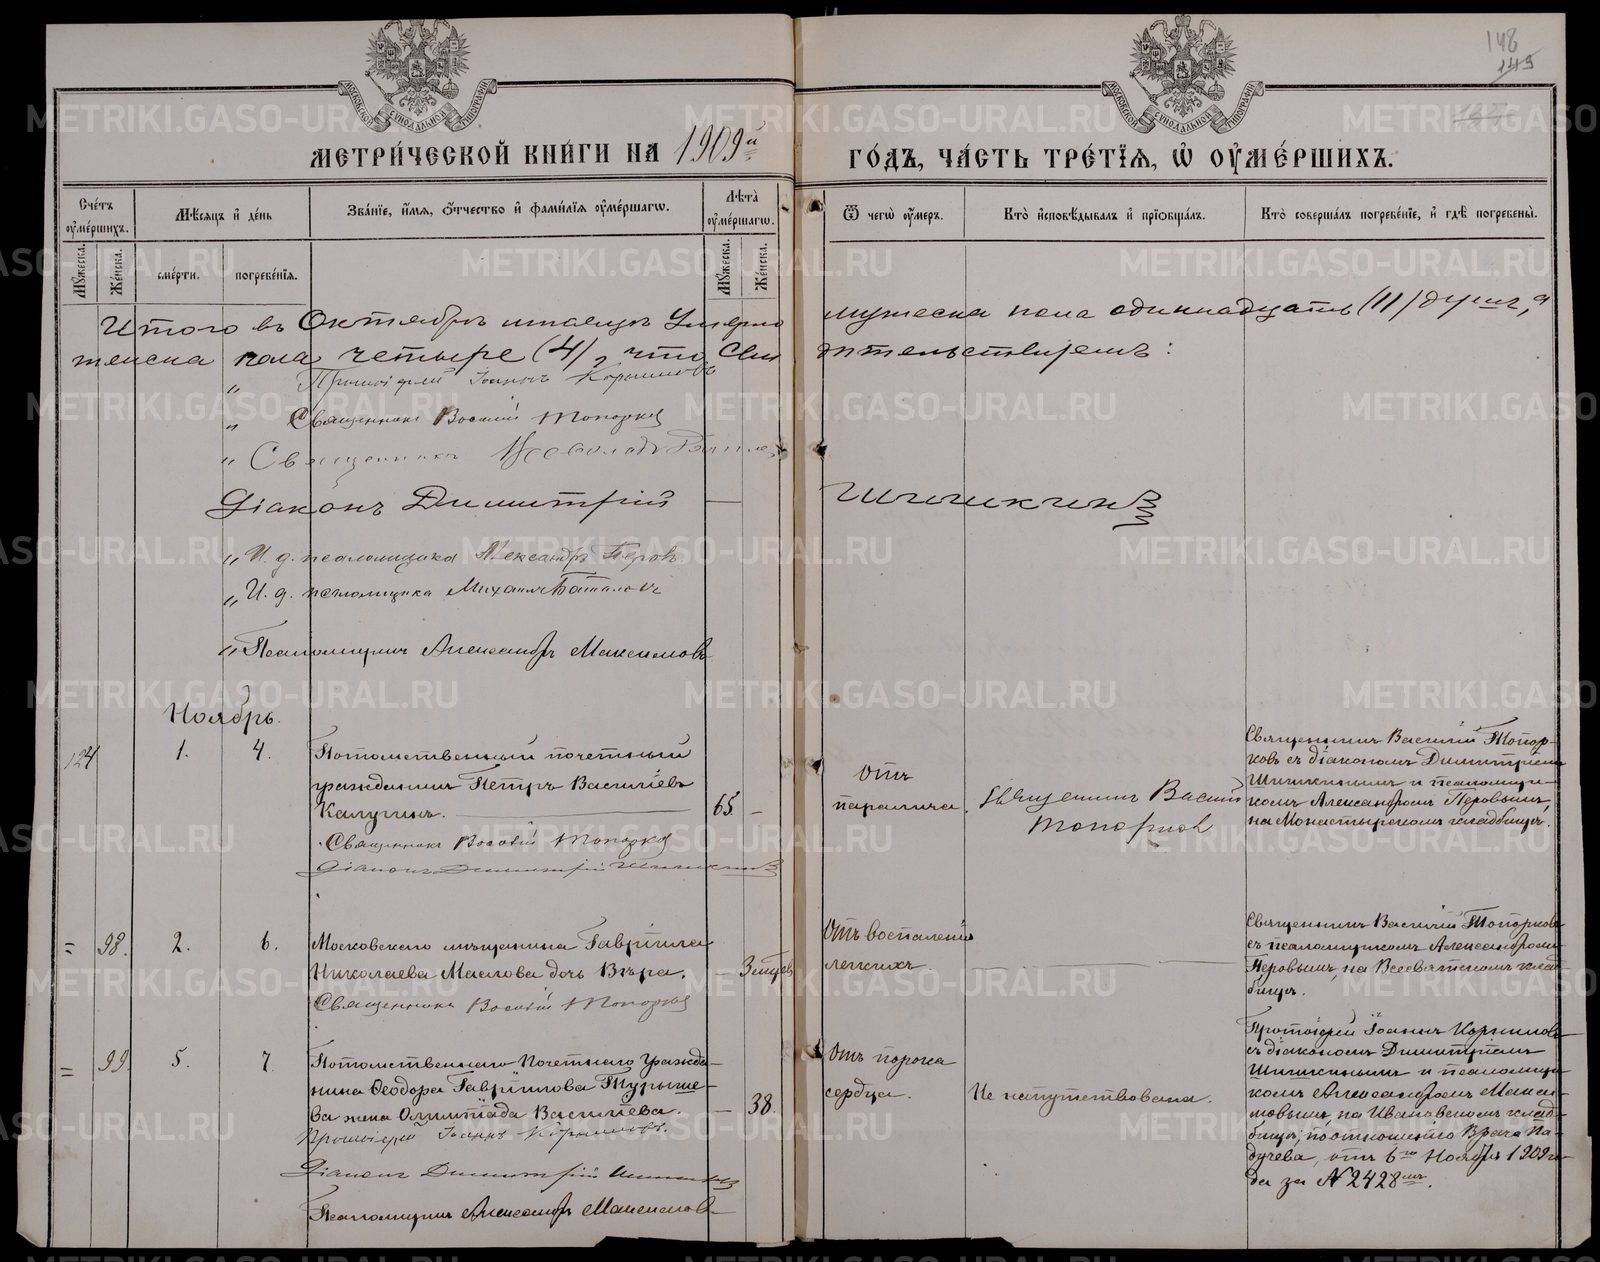 148
149
МЕТРИ́ЧЕСКОЙ КНИ́ГИ НА 1909й ГО́ДЪ, ЧА́СТЬ ТРЕ́ТІѦ, Ѡ ОУМЕ́РШИХЪ.
Сче́тъ оуме́ршихъ.
Мѣ́сяцъ и де́нь
Зва́нїе, и́мя, о́тчество и фами́лїя оуме́ршагѡ.
Лѣта̀ оуме́ршагѡ.
Ѿ чегѡ̀ оу́меръ.
Кто̀ исповѣ́дывалъ и прїобща́лъ.
Кто̀ соверша́лъ погребе́нїе, и гдѣ̀ погребены̀.
Му́жеска.
Же́нска.
сме́рти.
погребе́нїя.
Му́жеска.
Же́нска.
Итого въ Октябрѣ мѣсяцѣ умерло мужеска пола одиннадцать (11) душъ, а
женска пола четыре (4), что сви дѣтельствуемъ:
" Протоіерей Іоаннъ Корниловъ
" Священникъ Василій Топорков
" Священникъ Всеволодъ
Діаконъ Димитрій — Шишкинъ
" И. д. псаломщика Александръ Перовъ
" И. д. псаломщика Михаилъ Баталовъ
" Псаломщикъ Александръ Максимовъ
Ноябрь.
124 1. 4. Потомственный почетный
гражданинъ Петръ Василіевъ
Калугинъ. 65. —
Священникъ Василій Топорков
Діаконъ Димитрій Шишкинъ
Отъ
паралича.
Священникъ Василій
Топорков
Священникъ Василій Топор-
ковъ съ діакономъ Димитріемъ
Шишкинымъ и псаломщи-
комъ Александромъ Перовымъ,
на Монастырскомъ кладбищѣ.
= 98. 2. 6. Московскаго мѣщанина Гавріила
Николаева Маслова дочь Вѣра. — 3 мѣс
Священникъ Василій Топорков
Отъ воспаленія
легкихъ.
Священникъ Василій Топорковъ
съ псаломщикомъ Александромъ
Перовымъ, на Всесвятскомъ клад-
бищѣ.
= 99. 5. 7. Потомственнаго Почетнаго Гражда-
нина Ѳеодора Гавріилова Турыше-
ва жена Олимпіада Василіева. — 38.
Протоіерей Іоаннъ Корниловъ.
Діаконъ Димитрій Шишкинъ
Псаломщикъ Александръ Максимовъ
Отъ порока
сердца.
Не напутствована.
Протоіерей Іоаннъ Корниловъ
съ діакономъ Димитріемъ
Шишкинымъ и псаломщи-
комъ Александромъ Макси-
мовымъ, на Ивановскомъ клад-
бищѣ, по отношенію Врача Па-
дучева, отъ 6го Ноября 1909 го-
да за № 2428мъ.
METRIKI.GASO-URAL.RU